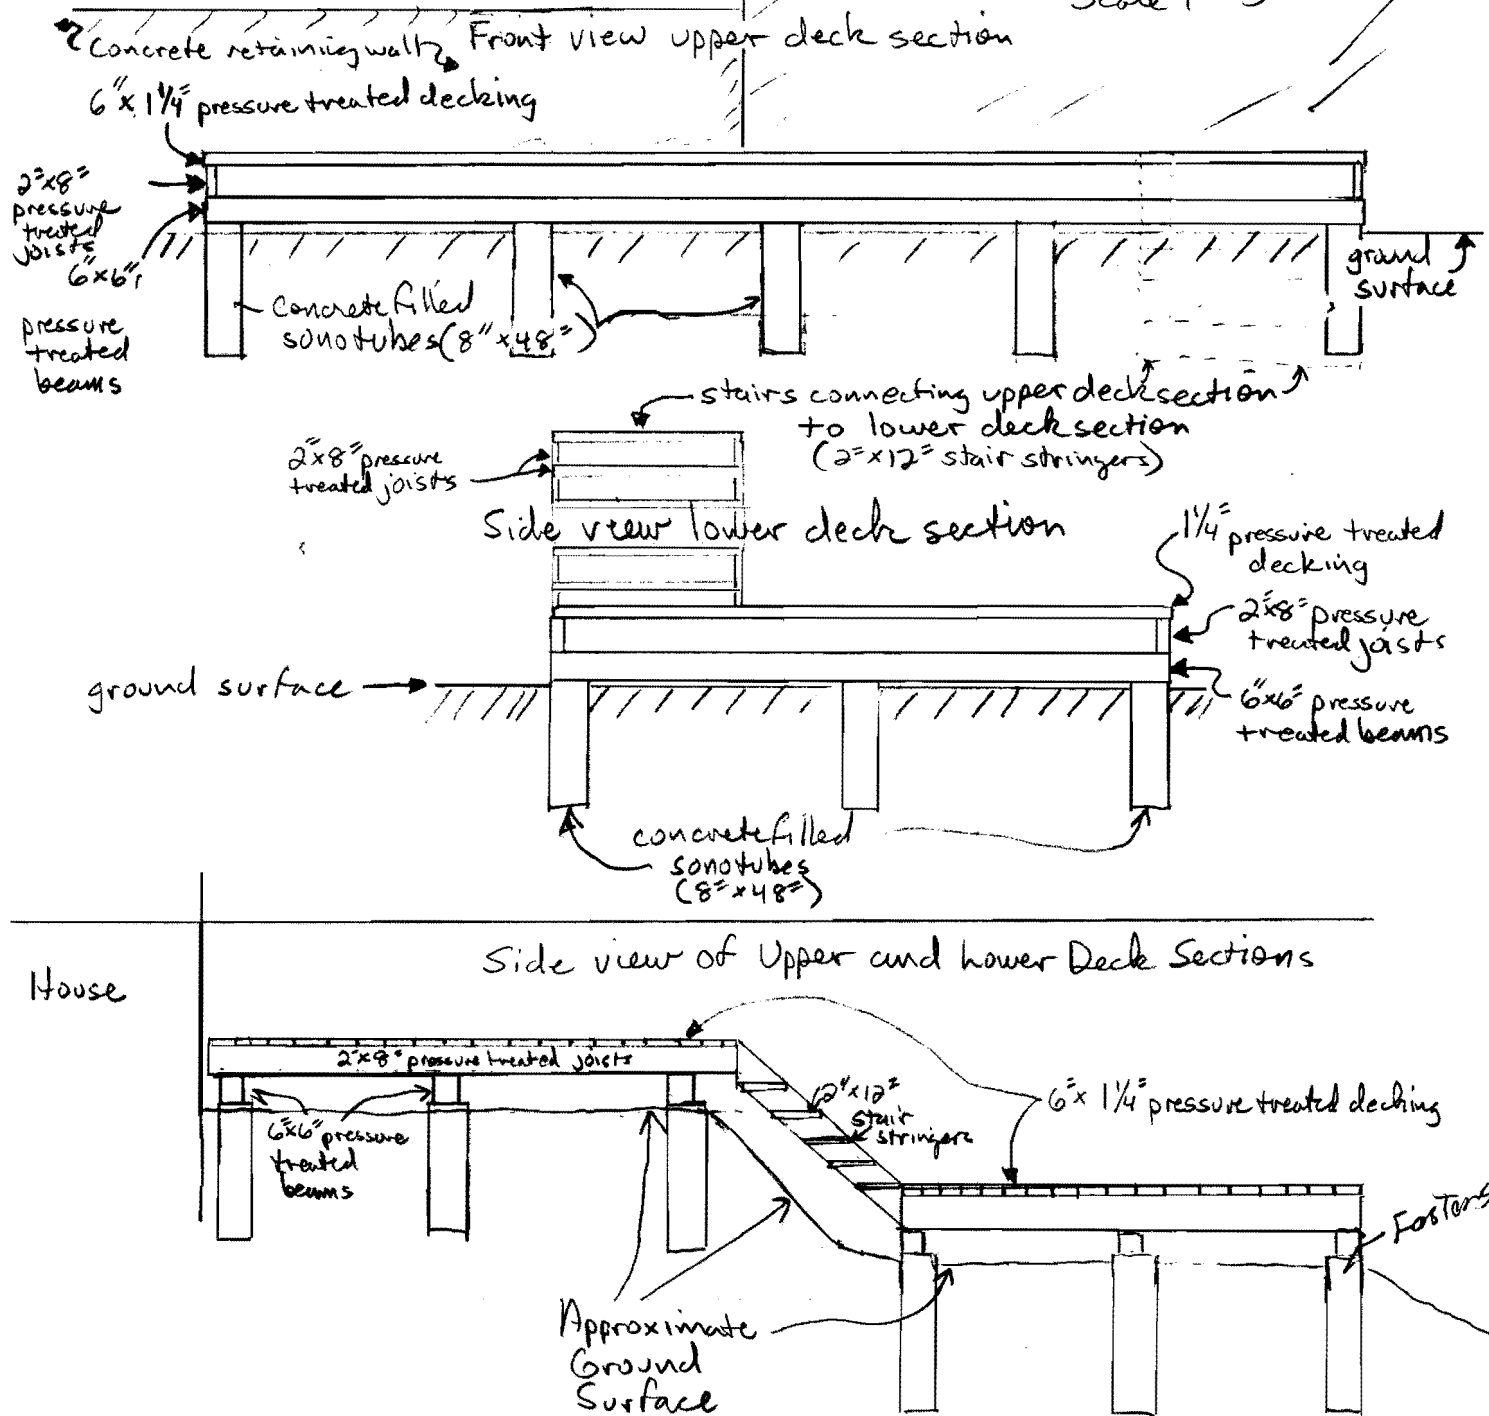 Scale 1
Concrete retaining wall
Front view upper deck section
6"x 1¼" pressure treated decking
2"x8"
pressure
treated
joists
6"x6"
pressure
treated
beams
concrete filled
sonotubes (8" x 48")
ground
surface
stairs connecting upper deck section
to lower deck section
(2"x12" stair stringers)
2"x8" pressure
treated joists
Side view lower deck section
1¼" pressure treated
decking
2"x8" pressure
treated joists
ground surface
6"x6" pressure
treated beams
concrete filled
sonotubes
(8" x 48")
Side view of Upper and Lower Deck Sections
House
2"x8" pressure treated joists
2"x12"
stair
stringers
6" x 1¼" pressure treated decking
6"x6" pressure
treated
beams
Approximate
Ground
Surface